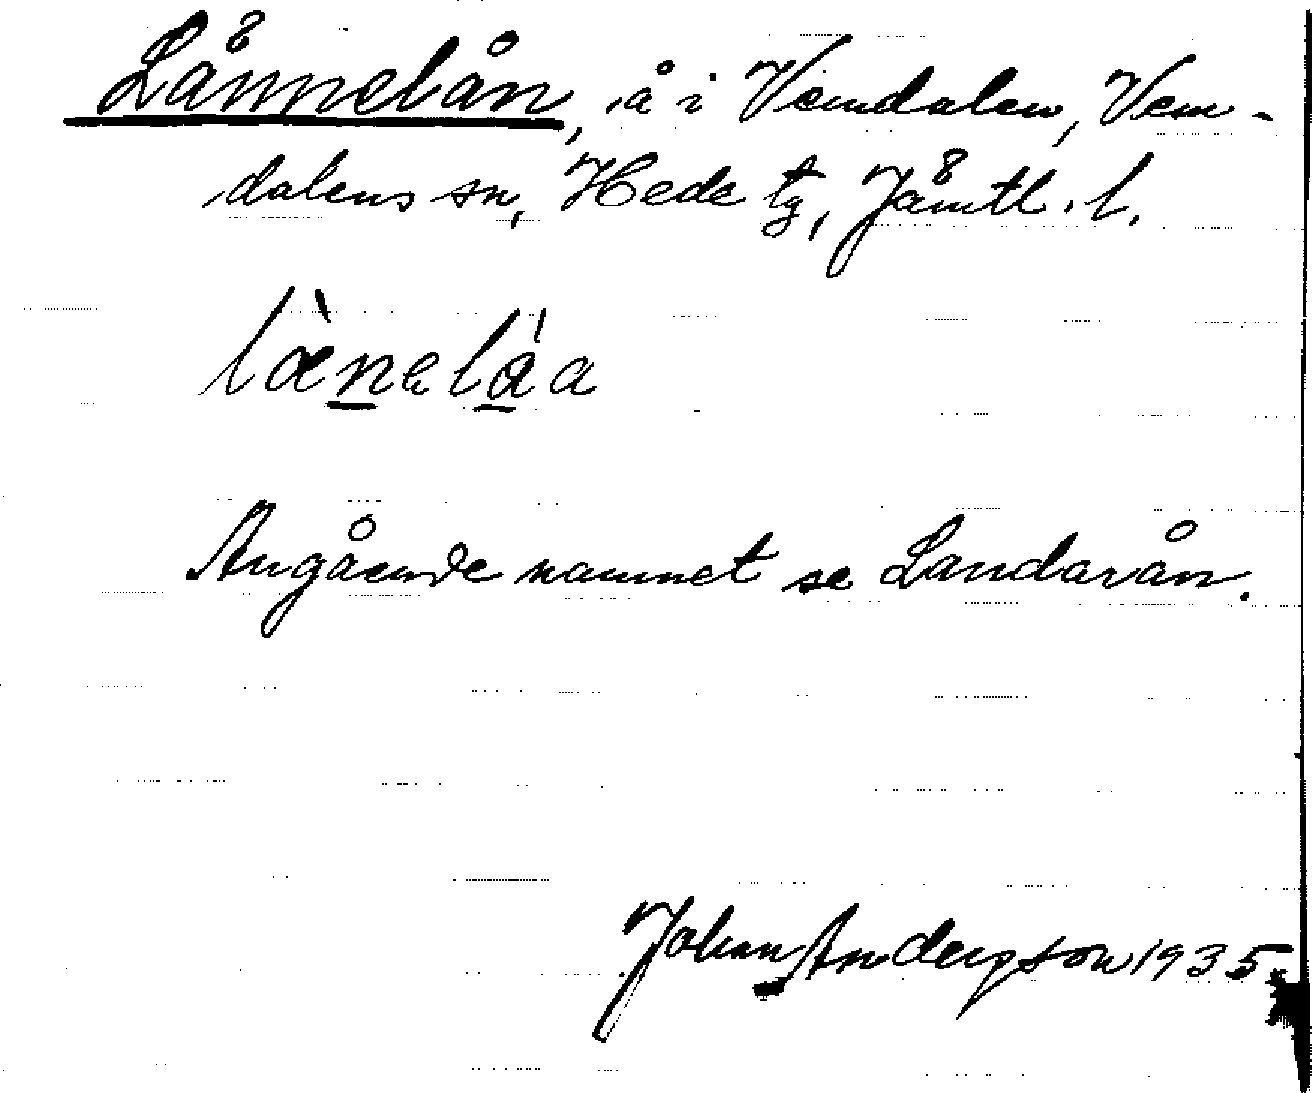 Lännelån, å i Vemdalen, Vem-
dalens sn, Hede tg, Jämtl. l.
lænelåa
Angående namnet se Landarån.
Johan Anderson 1935.